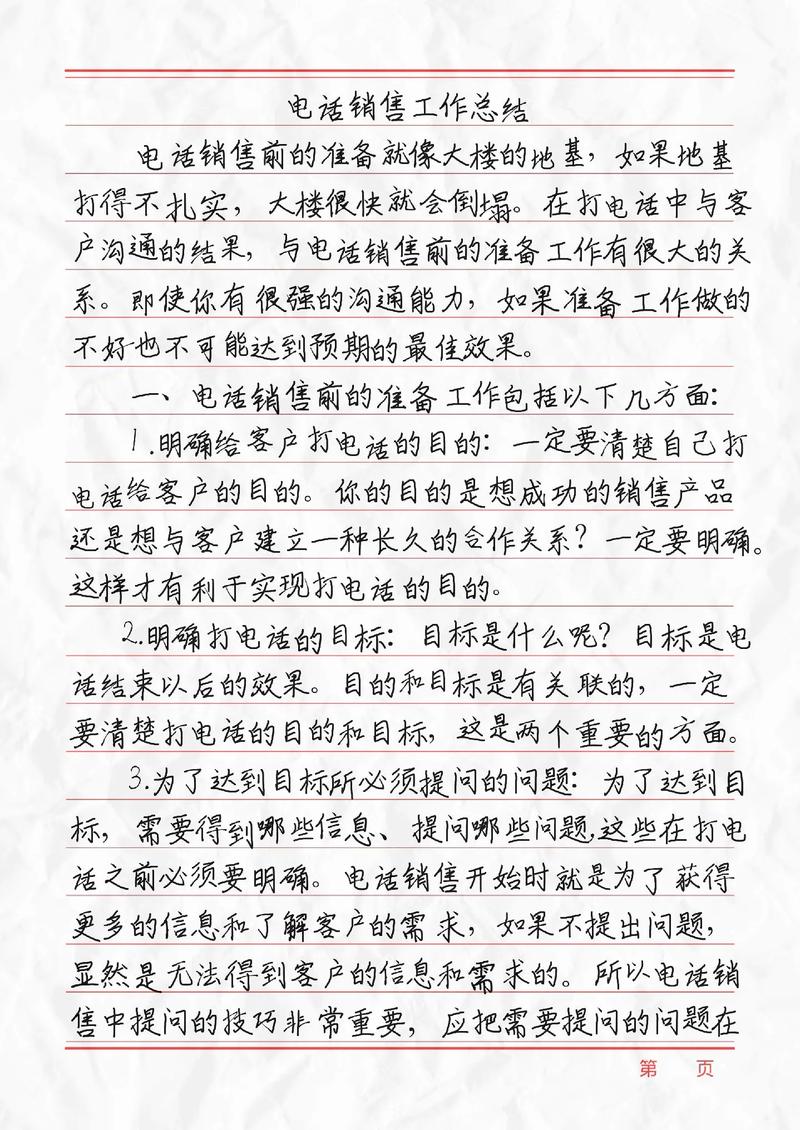 电话销售工作总结
电话销售前的准备就像大楼的地基，如果地基
打得不扎实，大楼很快就会倒塌。在打电话中与客
户沟通的结果，与电话销售前的准备工作有很大的关
系。即使你有很强的沟通能力，如果准备工作做的
不好也不可能达到预期的最佳效果。
一、电话销售前的准备工作包括以下几方面：
1.明确给客户打电话的目的：一定要清楚自己打
电话给客户的目的。你的目的是想成功的销售产品
还是想与客户建立一种长久的合作关系？一定要明确。
这样才有利于实现打电话的目的。
2.明确打电话的目标：目标是什么呢？目标是电
话结束以后的效果。目的和目标是有关联的，一定
要清楚打电话的目的和目标，这是两个重要的方面。
3.为了达到目标所必须提问的问题：为了达到目
标，需要得到哪些信息、提问哪些问题,这些在打电
话之前必须要明确。电话销售开始时就是为了获得
更多的信息和了解客户的需求，如果不提出问题，
显然是无法得到客户的信息和需求的。所以电话销
售中提问的技巧非常重要，应把需要提问的问题在
第 页